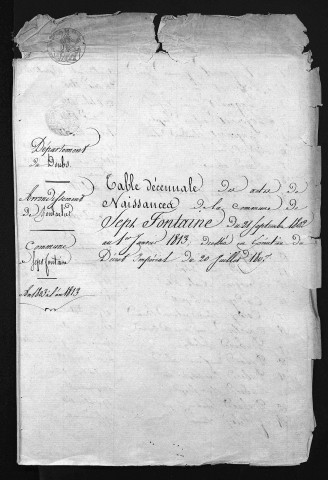 Département
du Doubs
Arrondissement
de Pontarlier
Commune
de Sept fontaine
An 1813
Table décennale des actes de
Naissances de la commune de
Sept Fontaine du 21 Septembre 1802
au 1er Janvier 1813, dressée en exécution du
Décret impérial du 20 Juillet 1807